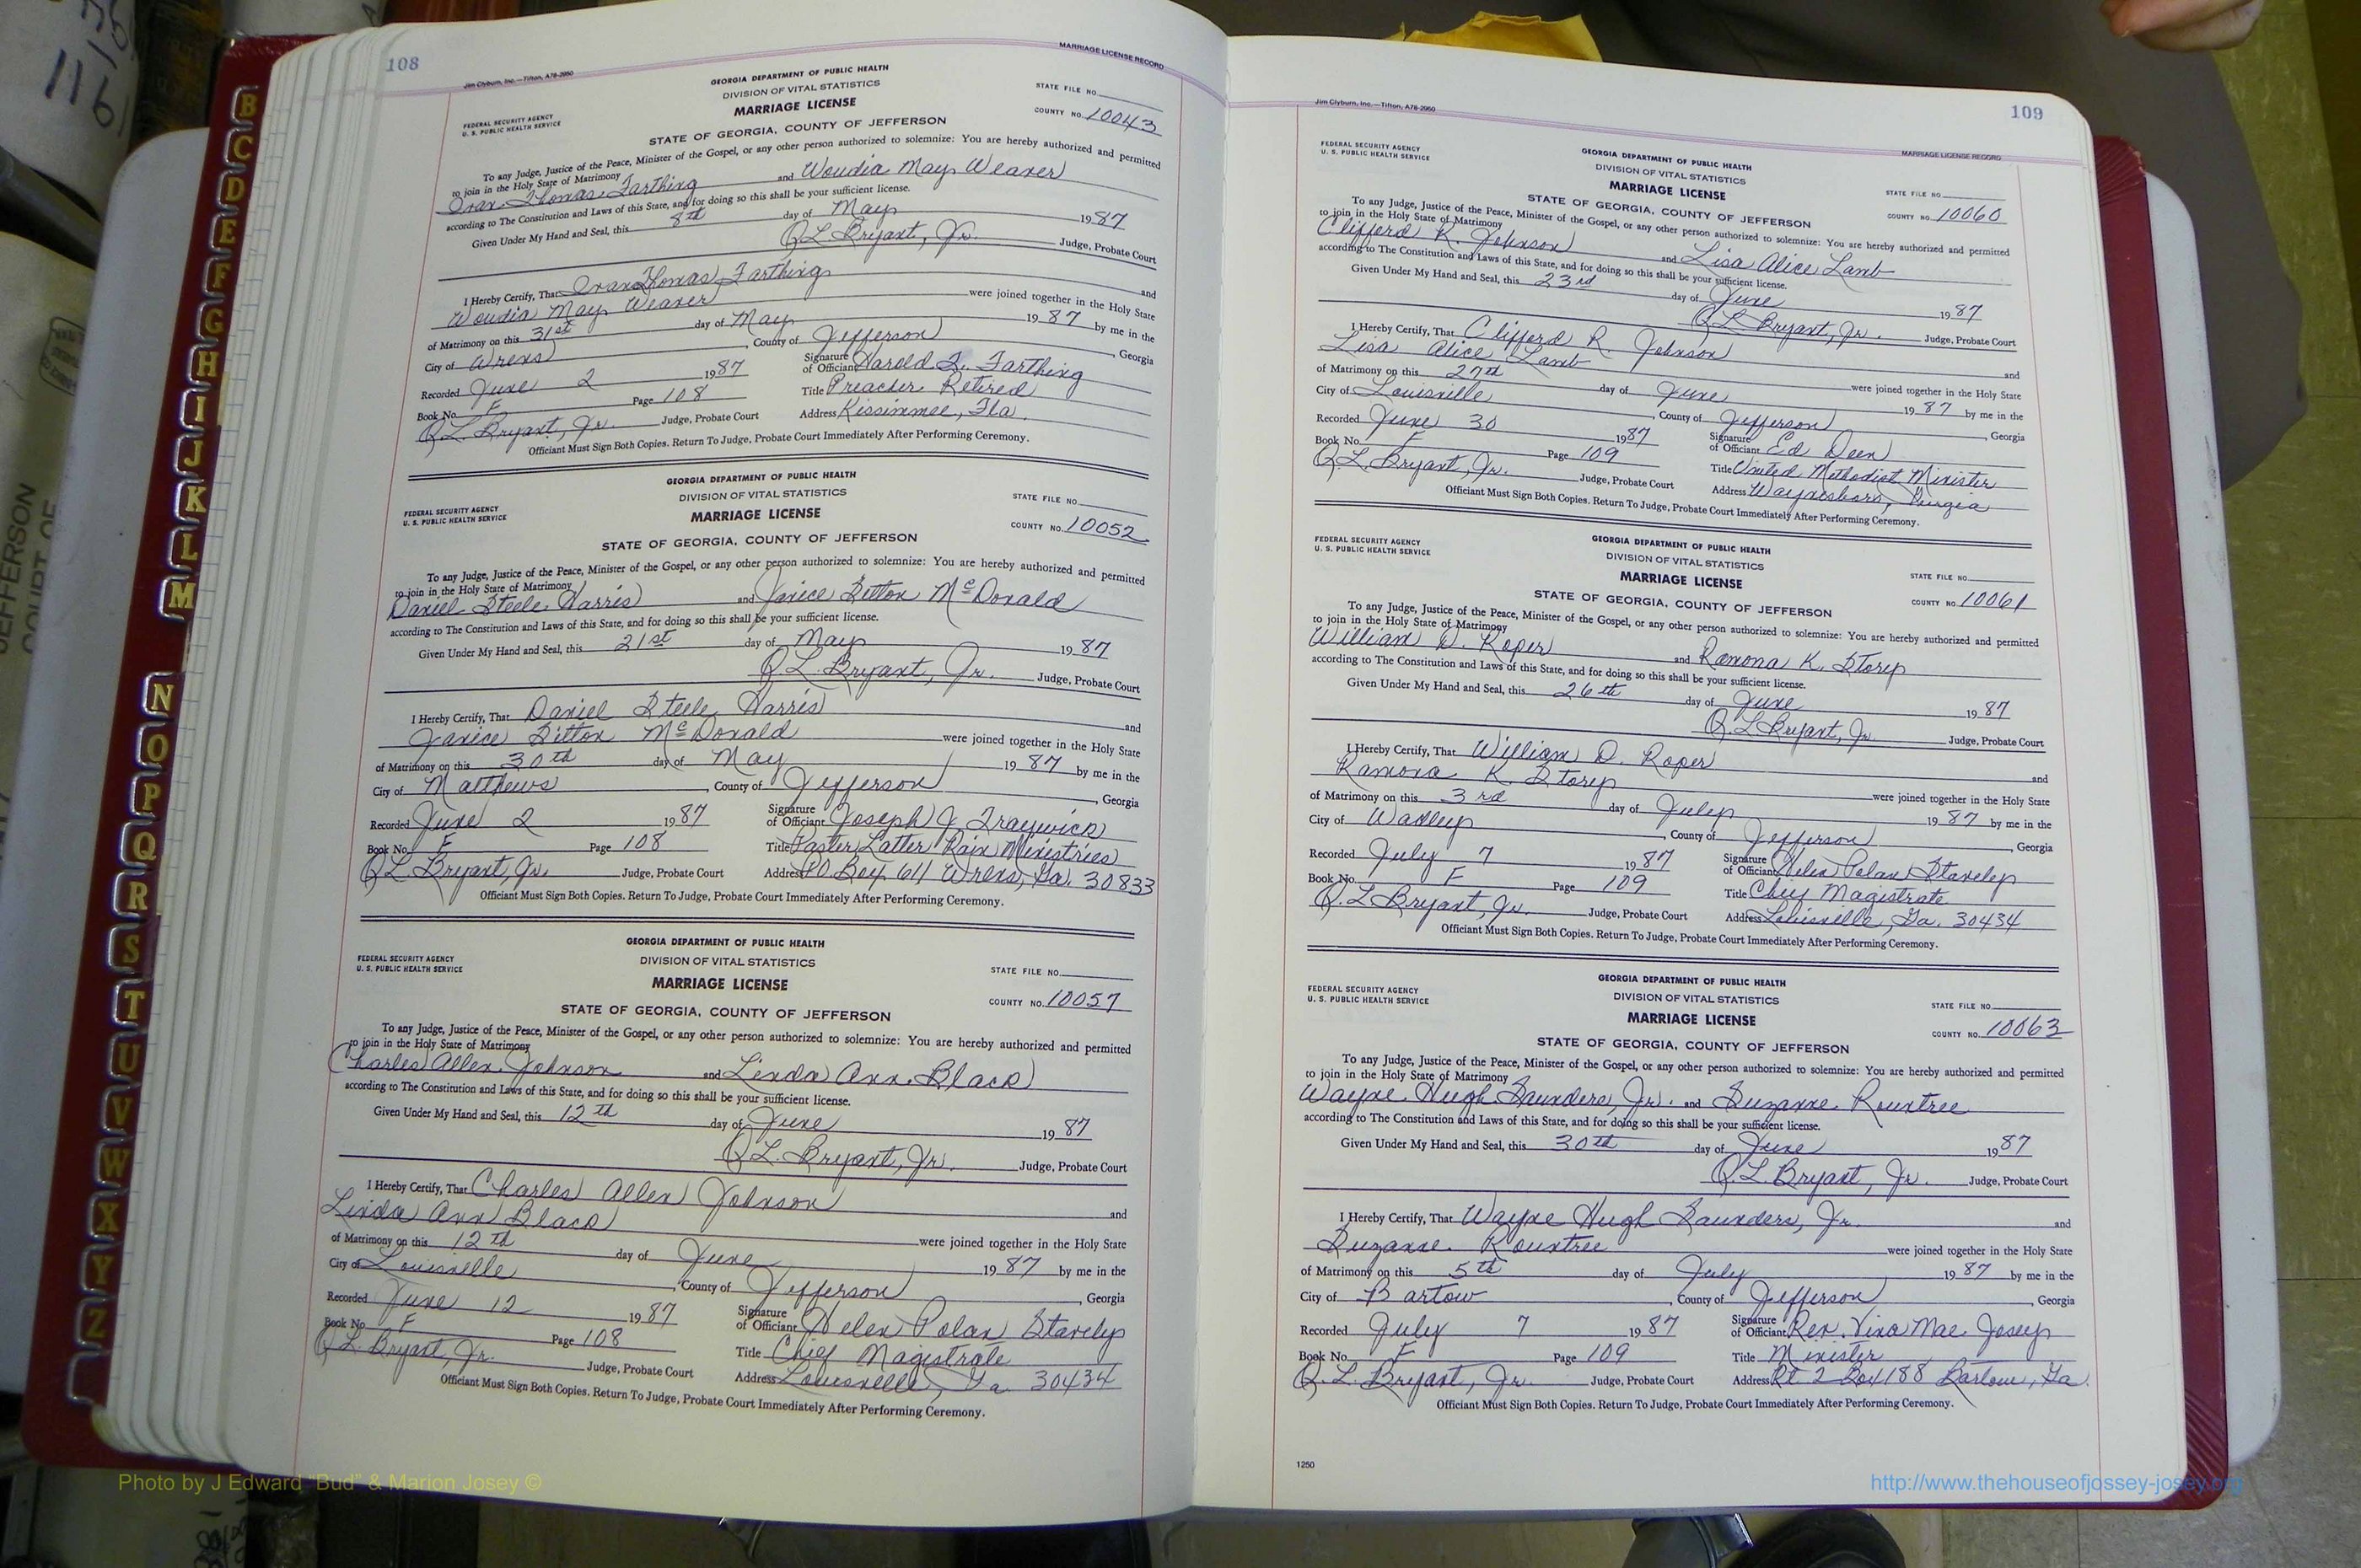 108
Jim Clyburn, Inc.—Tifton, A78-2950
MARRIAGE LICENSE RECORD
GEORGIA DEPARTMENT OF PUBLIC HEALTH
DIVISION OF VITAL STATISTICS
MARRIAGE LICENSE
FEDERAL SECURITY AGENCY
U. S. PUBLIC HEALTH SERVICE
STATE FILE NO.
COUNTY NO. 10043
STATE OF GEORGIA, COUNTY OF JEFFERSON
To any Judge, Justice of the Peace, Minister of the Gospel, or any other person authorized to solemnize: You are hereby authorized and permitted
to join in the Holy State of Matrimony
Thomas Farthing and Woudia May Weaver
according to The Constitution and Laws of this State, and for doing so this shall be your sufficient license.
Given Under My Hand and Seal, this 8th day of May 1987
Q.L. Bryant, Jr. Judge, Probate Court
I Hereby Certify, That Thomas Farthing and
Woudia May Weaver were joined together in the Holy State
of Matrimony on this 31st day of May 1987 by me in the
City of Wrens, County of Jefferson, Georgia
Recorded June 2 1987 Signature of Officiant Harold L. Farthing
Book No. F Page 108 Title Preacher Retired
Q.L. Bryant, Jr. Judge, Probate Court Address Kissimmee, Fla.
Officiant Must Sign Both Copies. Return To Judge, Probate Court Immediately After Performing Ceremony.
GEORGIA DEPARTMENT OF PUBLIC HEALTH
DIVISION OF VITAL STATISTICS
MARRIAGE LICENSE
FEDERAL SECURITY AGENCY
U. S. PUBLIC HEALTH SERVICE
STATE FILE NO.
COUNTY NO. 10052
STATE OF GEORGIA, COUNTY OF JEFFERSON
To any Judge, Justice of the Peace, Minister of the Gospel, or any other person authorized to solemnize: You are hereby authorized and permitted
to join in the Holy State of Matrimony
Daniel Steele Harris and Janice Sitton McDonald
according to The Constitution and Laws of this State, and for doing so this shall be your sufficient license.
Given Under My Hand and Seal, this 21st day of May 1987
Q.L. Bryant, Jr. Judge, Probate Court
I Hereby Certify, That Daniel Steele Harris and
Janice Sitton McDonald were joined together in the Holy State
of Matrimony on this 30th day of May 1987 by me in the
City of Matthews, County of Jefferson, Georgia
Recorded June 2 1987 Signature of Officiant Joseph J. Traywick
Book No. F Page 108 Title Pastor Latter Rain Ministries
Q.L. Bryant, Jr. Judge, Probate Court Address P.O. Box 611 Wrens, Ga. 30833
Officiant Must Sign Both Copies. Return To Judge, Probate Court Immediately After Performing Ceremony.
GEORGIA DEPARTMENT OF PUBLIC HEALTH
DIVISION OF VITAL STATISTICS
MARRIAGE LICENSE
FEDERAL SECURITY AGENCY
U. S. PUBLIC HEALTH SERVICE
STATE FILE NO.
COUNTY NO. 10057
STATE OF GEORGIA, COUNTY OF JEFFERSON
To any Judge, Justice of the Peace, Minister of the Gospel, or any other person authorized to solemnize: You are hereby authorized and permitted
to join in the Holy State of Matrimony
Charles Allen Johnson and Linda Ann Black
according to The Constitution and Laws of this State, and for doing so this shall be your sufficient license.
Given Under My Hand and Seal, this 12th day of June 1987
Q.L. Bryant, Jr. Judge, Probate Court
I Hereby Certify, That Charles Allen Johnson and
Linda Ann Black were joined together in the Holy State
of Matrimony on this 12th day of June 1987 by me in the
City of Louisville, County of Jefferson, Georgia
Recorded June 12 1987 Signature of Officiant Helen Polan Stavely
Book No. F Page 108 Title Chief Magistrate
Q.L. Bryant, Jr. Judge, Probate Court Address Louisville, Ga. 30434
Officiant Must Sign Both Copies. Return To Judge, Probate Court Immediately After Performing Ceremony.
109
Jim Clyburn, Inc.—Tifton, A78-2950
MARRIAGE LICENSE RECORD
FEDERAL SECURITY AGENCY
U. S. PUBLIC HEALTH SERVICE
GEORGIA DEPARTMENT OF PUBLIC HEALTH
DIVISION OF VITAL STATISTICS
MARRIAGE LICENSE
STATE FILE NO.
COUNTY NO. 10060
STATE OF GEORGIA, COUNTY OF JEFFERSON
To any Judge, Justice of the Peace, Minister of the Gospel, or any other person authorized to solemnize: You are hereby authorized and permitted
to join in the Holy State of Matrimony
Clifferd R. Johnson and Lisa Alice Lamb
according to The Constitution and Laws of this State, and for doing so this shall be your sufficient license.
Given Under My Hand and Seal, this 23rd day of June 1987
Q.L. Bryant, Jr. Judge, Probate Court
I Hereby Certify, That Clifferd R. Johnson and
Lisa Alice Lamb were joined together in the Holy State
of Matrimony on this 27th day of June 1987 by me in the
City of Louisville, County of Jefferson, Georgia
Recorded June 30 1987 Signature of Officiant Ed Deen
Book No. F Page 109 Title United Methodist Minister
Q.L. Bryant, Jr. Judge, Probate Court Address Waynesboro, Georgia
Officiant Must Sign Both Copies. Return To Judge, Probate Court Immediately After Performing Ceremony.
FEDERAL SECURITY AGENCY
U. S. PUBLIC HEALTH SERVICE
GEORGIA DEPARTMENT OF PUBLIC HEALTH
DIVISION OF VITAL STATISTICS
MARRIAGE LICENSE
STATE FILE NO.
COUNTY NO. 10061
STATE OF GEORGIA, COUNTY OF JEFFERSON
To any Judge, Justice of the Peace, Minister of the Gospel, or any other person authorized to solemnize: You are hereby authorized and permitted
to join in the Holy State of Matrimony
William D. Roper and Ramona K. Storey
according to The Constitution and Laws of this State, and for doing so this shall be your sufficient license.
Given Under My Hand and Seal, this 26th day of June 1987
Q.L. Bryant, Jr. Judge, Probate Court
I Hereby Certify, That William D. Roper and
Ramona K. Storey were joined together in the Holy State
of Matrimony on this 3rd day of July 1987 by me in the
City of Wadley, County of Jefferson, Georgia
Recorded July 7 1987 Signature of Officiant Helen Polan Stavely
Book No. F Page 109 Title Chief Magistrate
Q.L. Bryant, Jr. Judge, Probate Court Address Louisville, Ga. 30434
Officiant Must Sign Both Copies. Return To Judge, Probate Court Immediately After Performing Ceremony.
FEDERAL SECURITY AGENCY
U. S. PUBLIC HEALTH SERVICE
GEORGIA DEPARTMENT OF PUBLIC HEALTH
DIVISION OF VITAL STATISTICS
MARRIAGE LICENSE
STATE FILE NO.
COUNTY NO. 10063
STATE OF GEORGIA, COUNTY OF JEFFERSON
To any Judge, Justice of the Peace, Minister of the Gospel, or any other person authorized to solemnize: You are hereby authorized and permitted
to join in the Holy State of Matrimony
Wayne Hugh Saunders, Jr. and Suzanne Rountree
according to The Constitution and Laws of this State, and for doing so this shall be your sufficient license.
Given Under My Hand and Seal, this 30th day of June 1987
Q.L. Bryant, Jr. Judge, Probate Court
I Hereby Certify, That Wayne Hugh Saunders, Jr. and
Suzanne Rountree were joined together in the Holy State
of Matrimony on this 5th day of July 1987 by me in the
City of Bartow, County of Jefferson, Georgia
Recorded July 7 1987 Signature of Officiant Rev. Vina Mae Josey
Book No. F Page 109 Title Minister
Q.L. Bryant, Jr. Judge, Probate Court Address Rt 2 Box 188 Bartow, Ga.
Officiant Must Sign Both Copies. Return To Judge, Probate Court Immediately After Performing Ceremony.
1250
B
C
D
E
F
G
H
I
J
K
L
M
N
O
P
Q
R
S
T
U
V
W
X
Y
Z
JEFFERSON
COURT OF
Photo by J Edward "Bud" & Marion Josey ©
http://www.thehouseofjossey-josey.org